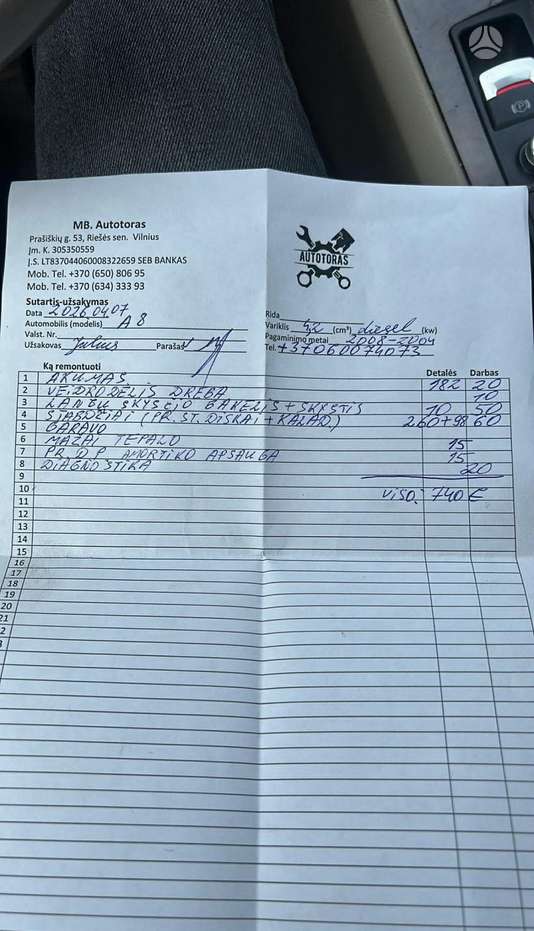 MB. Autotoras
Prašiškių g. 53, Riešės sen. Vilnius
Įm. K. 305350559
J.S. LT837044060008322659 SEB BANKAS
Mob. Tel. +370 (650) 806 95
Mob. Tel. +370 (634) 333 93
AUTOTORAS
Sutartis-užsakymas
Data 2026.04.07
Automobilis (modelis) A8
Valst. Nr.
Užsakovas Julius Parašas
Rida
Variklis 4,2 (cm³) diesel (kw)
Pagaminimo metai 2008-2004
Tel. +37060074073
Ką remontuoti Detalės Darbas
1 AKUMAS 182 20
2 VEIDRODĖLIS DREBA 10
3 LANGŲ SKYSČIO BAKELIS + SKYSTIS 10 50
4 STABDŽIAI (PR. ST. DISKAI + KALAD) 260+98 60
5 GARAVO
6 MAŽAI TEPALO 15
7 PR. D.P. AMORTIKO APSAUGA 15
8 DIAGNOSTIKA 20
9
10 VISO: 740 €
11
12
13
14
15
16
17
18
19
20
21
2
3